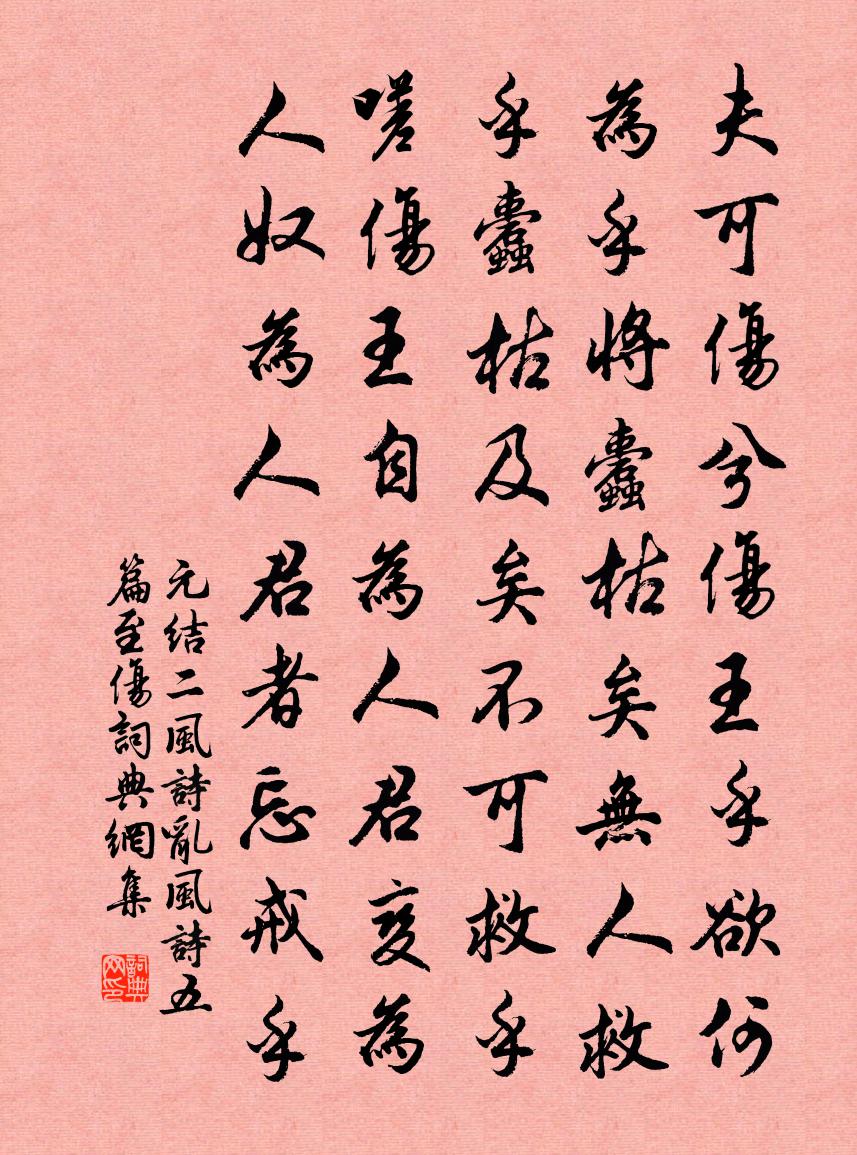 夫可傷兮傷王乎欲何
為乎將蠹枯矣無人救
乎蠹枯及矣不可救乎
嗟傷王自為人君變為
人奴為人君者忘戒乎
元结二風詩亂風詩五
篇至傷詞典網集
詞典
网印